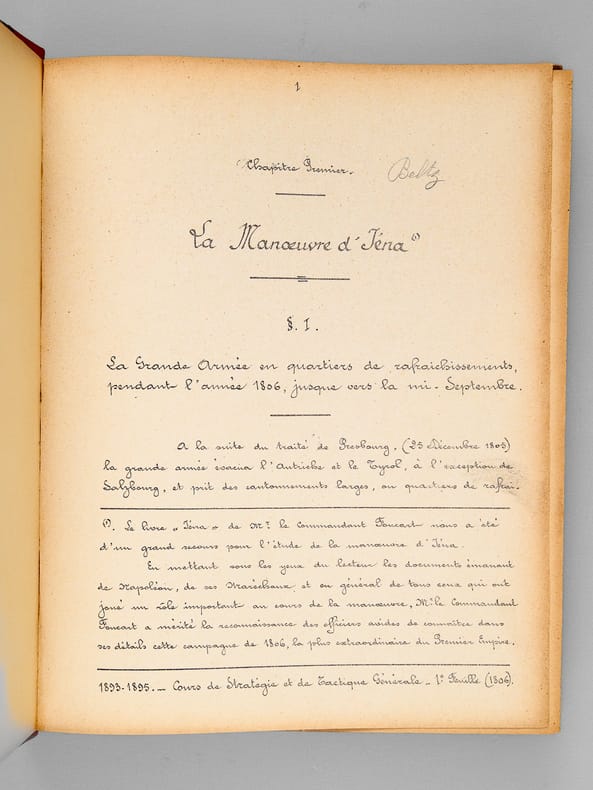 1
Chapitre Premier.
Beltz
La Manœuvre d'Iéna (1)
§. I.
La Grande Armée en quartiers de rafraichissements,
pendant l'année 1806, jusque vers la mi-Septembre.
A la suite du traité de Presbourg, (25 Décembre 1805)
la grande armée évacua l'Autriche et le Tyrol, à l'exception de
Salzbourg, et prit des cantonnements larges, ou quartiers de rafraî-
(1). Le livre „Iéna" de Mr. le Commandant Foucart nous a été
d'un grand secours pour l'étude de la manœuvre d'Iéna.
En mettant sous les yeux du lecteur les documents émanant
de Napoléon, de ses Maréchaux et en général de tous ceux qui ont
joué un rôle important au cours de la manœuvre, Mr. le Commandant
Foucart a mérité la reconnaissance des officiers avides de connaître dans
ses détails cette campagne de 1806, la plus extraordinaire du Premier Empire.
1893-1895. — Cours de Stratégie et de Tactique Générale - 1e Feuille (1806).